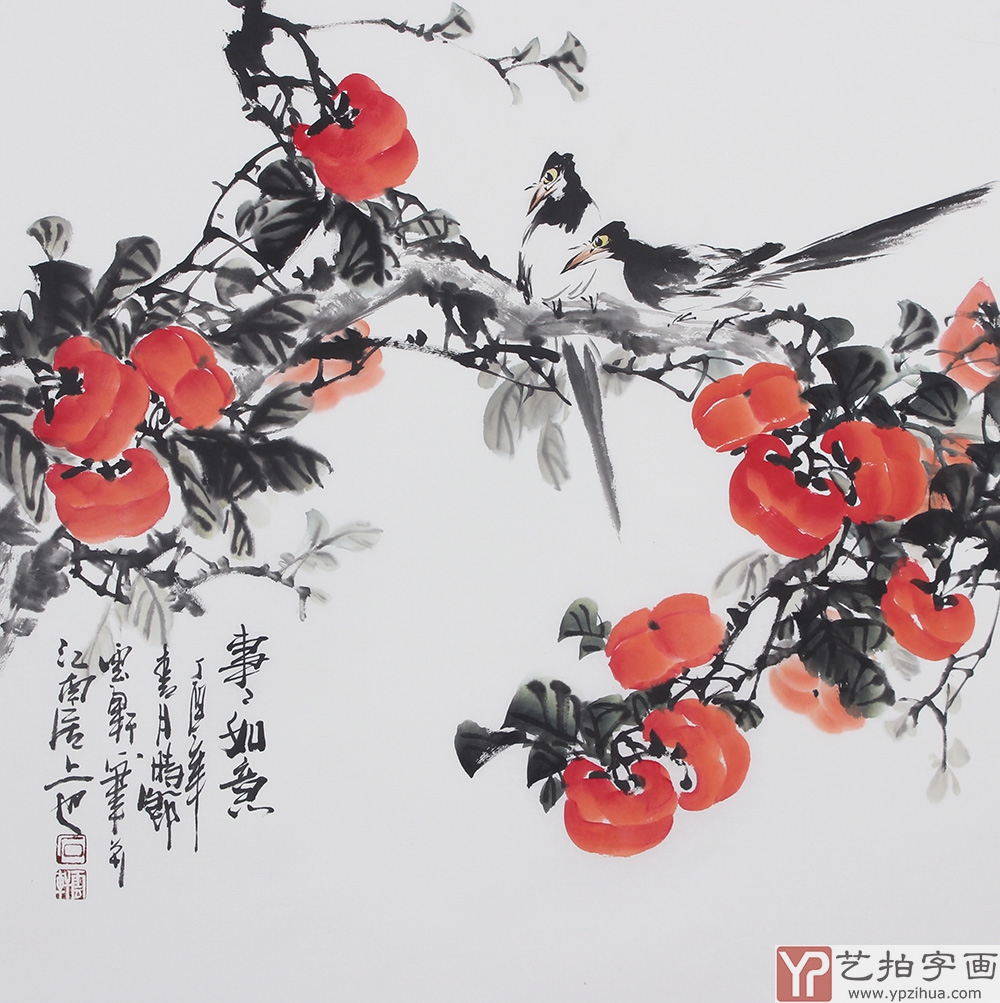 事〻如意
丁酉年
春月时节
雲軒寫於
江南居上也
石
雲軒
YP 艺拍字画
www.ypzihua.com